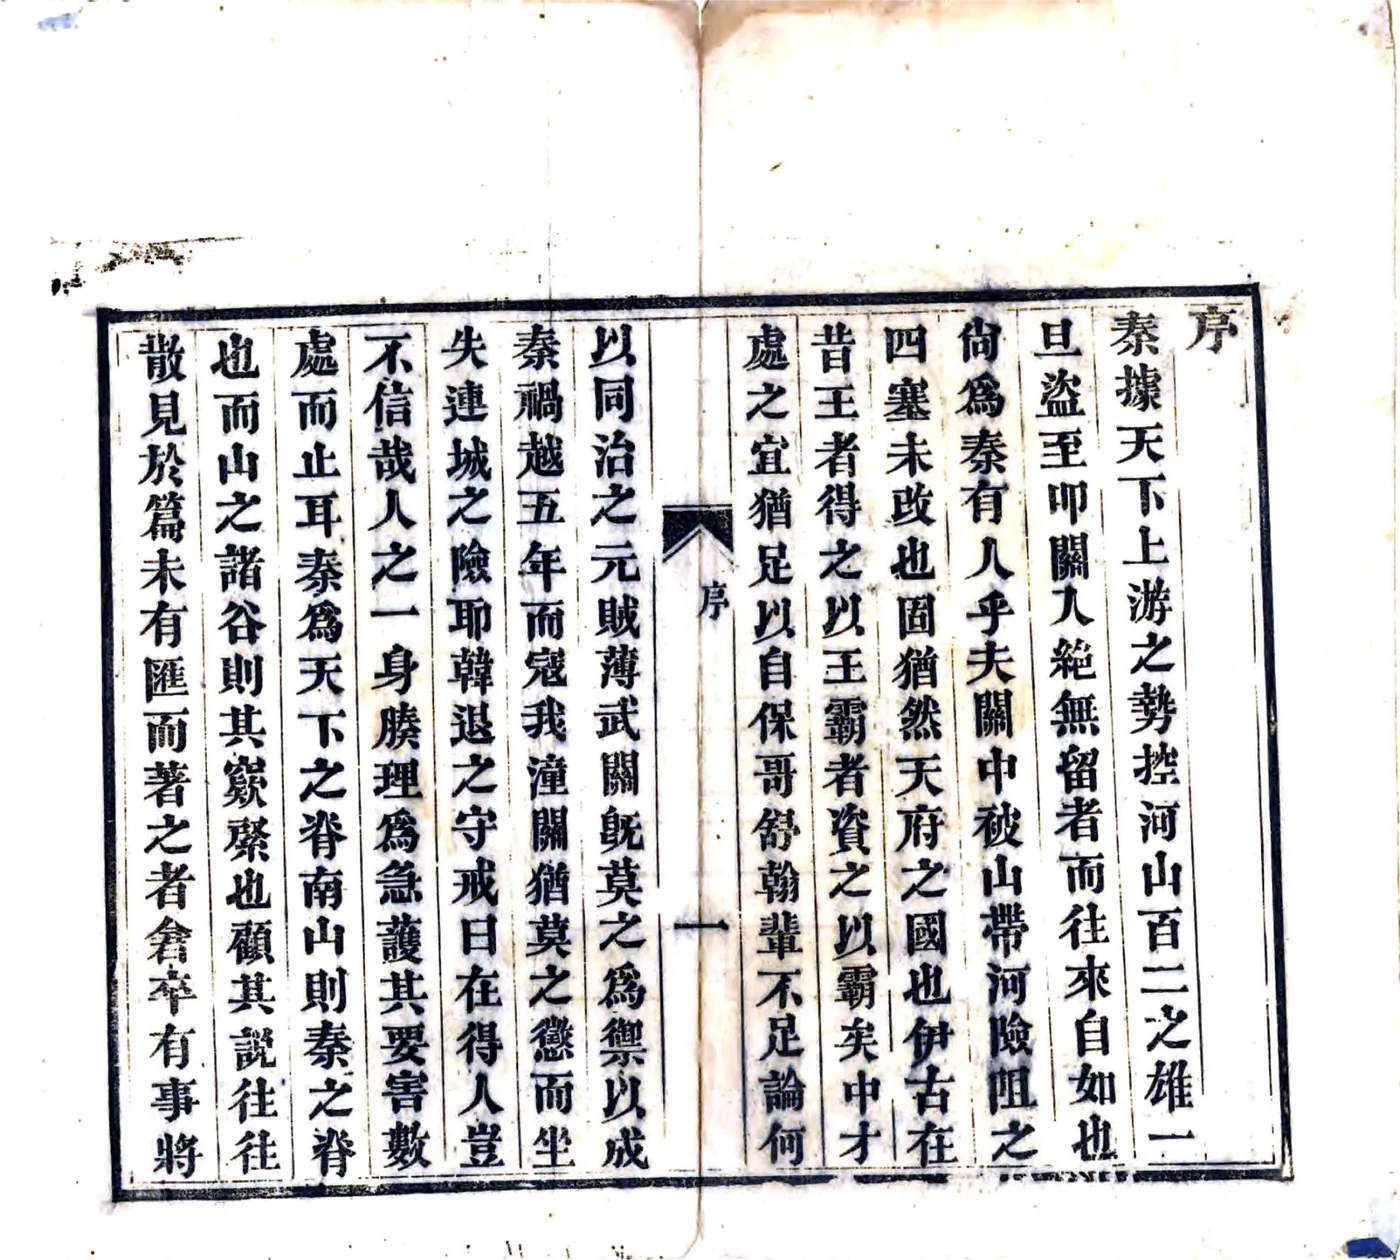 序
秦據天下上游之勢控河山百二之雄一
旦盜至叩關入絶無留者而往來自如也
尙爲秦有人乎夫關中被山帶河險阻之
四塞未改也固猶然天府之國也伊古在
昔王者得之以王霸者資之以霸矣中才
處之宜猶足以自保哥舒翰輩不足論何
序
一
以同治之元賊薄武關旣莫之爲禦以成
秦禍越五年而寇我潼關猶莫之懲而坐
失連城之險耶韓退之守戒曰在得人豈
不信哉人之一身腠理爲急護其要害數
處而止耳秦爲天下之脊南山則秦之脊
也而山之諸谷則其窾綮也顧其說往往
散見於篇未有匯而著之者倉卒有事將